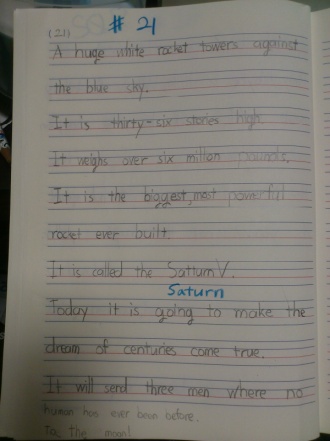 (21) # 21
A huge white rocket towers against
the blue sky.
It is thirty-six stories high.
It weighs over six million pounds.
It is the biggest, most powerful
rocket ever built.
It is called the Satium V.
Saturn
Today it is going to make the
dream of centuries come true.
It will send three men where no
human has ever been before.
To the moon!